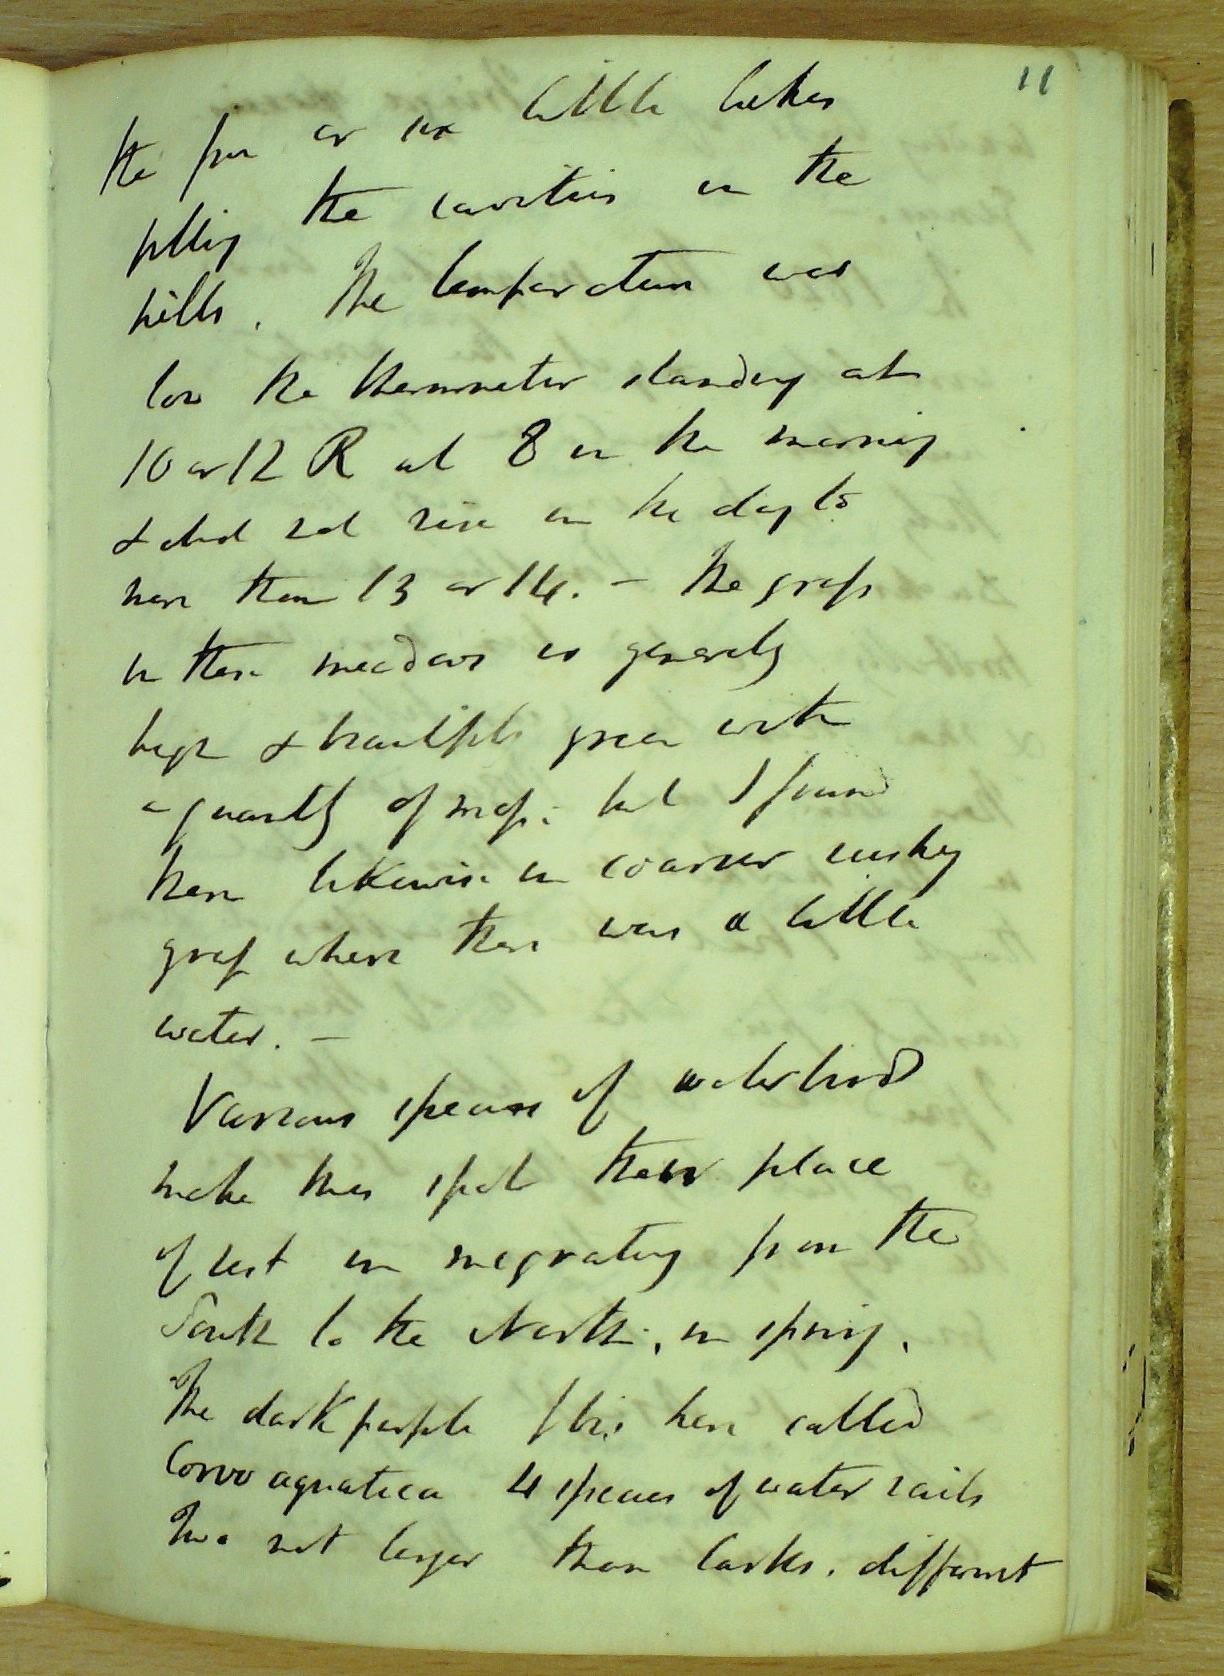 11
the five or six little lakes
filling the cavities in the
hills. The temperature was
low the thermometer standing at
10 or 12 R at 8 in the morning
& did not rise in the day to
more than 13 or 14. - The grass
in these meadows is generally
high & beautifully green with
a quantity of moss; but I found
here likewise a coarser rushy
grass where there was a little
water. -
Various species of waterbirds
make this spot their place
of rest in migrating from the
South to the North, in spring.
The dark purple Ibis here called
Corvo aquatica 4 species of water rails
Two not larger than larks. different